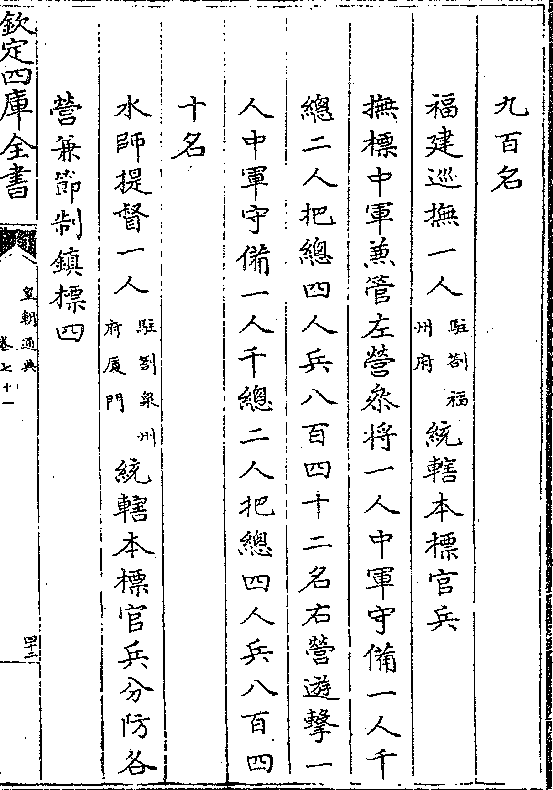 九百名
福建巡撫一人駐劄福州府統轄本標官兵
撫標中軍兼管左營叅將一人中軍守備一人千
總二人把總四人兵八百四十二名右營遊擊一
人中軍守備一人千總二人把總四人兵八百四
十名
水師提督一人駐劄泉州府厦門統轄本標官兵分防各
營兼節制鎮標四
欽定四庫全書
皇朝通典
卷七十一
四十二